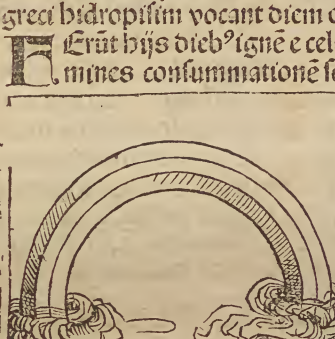 greci hidropisim vocant diem
Erūt hijs diebꝰ ignē e cel
mines consummationē se